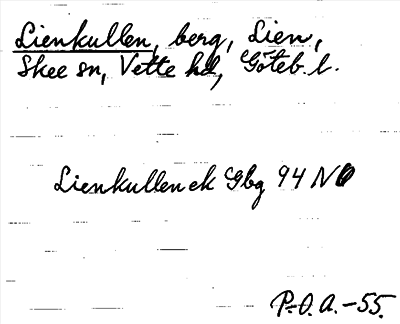 Lienkullen, berg, Lien,
Skee sn, Vette hd, Göteb. l.
Lienkullen ek Gbg 94 NO
P.O.A. -55.